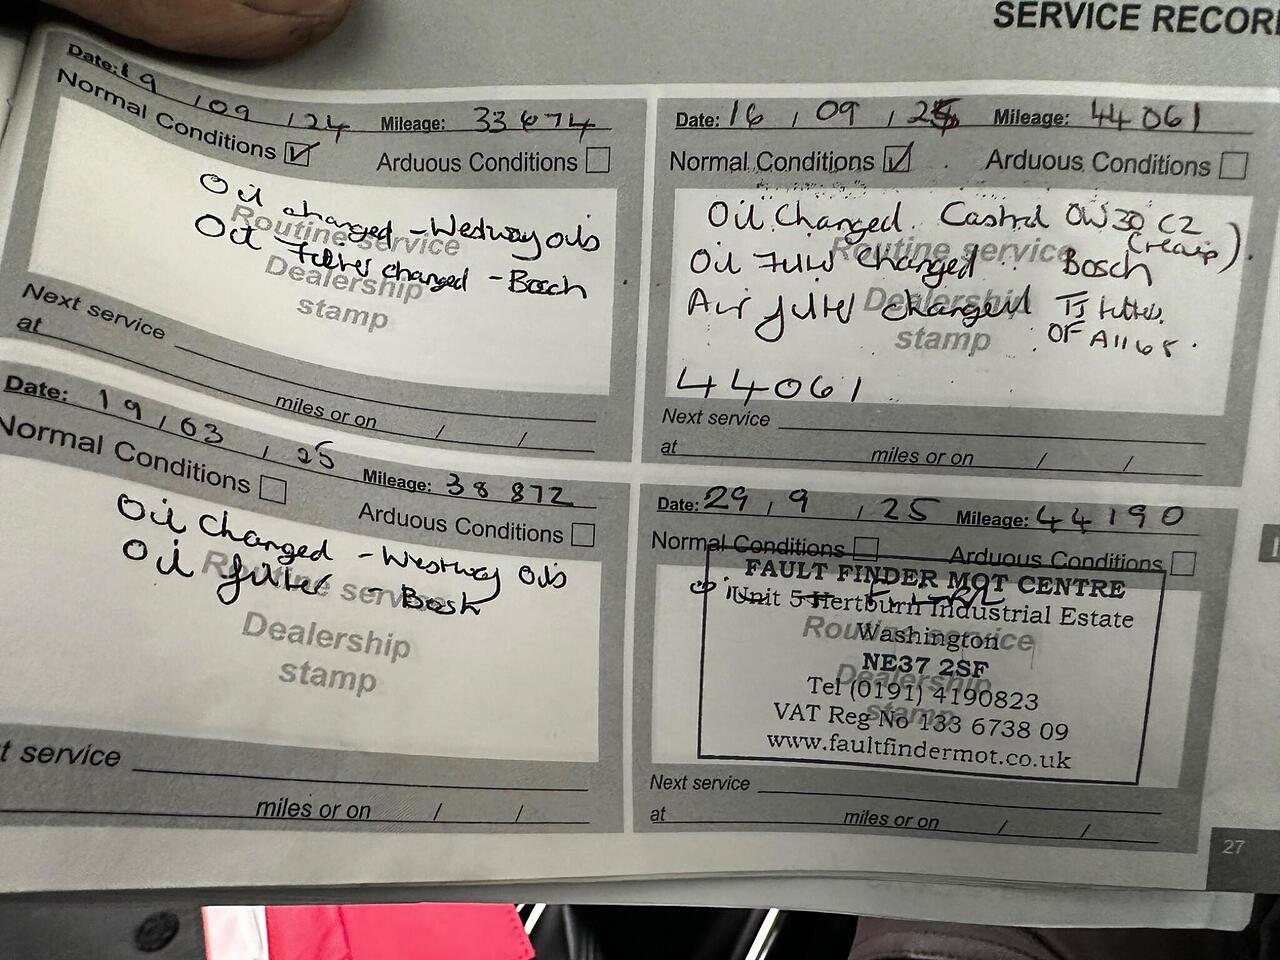 SERVICE RECOR
Date: 19 / 09 / 24 Mileage: 33674
Normal Conditions Arduous Conditions
Oil changed - Westway oils
Oil Filter changed - Bosch
Routine service
Dealership
stamp
Next service
at miles or on / /
Date: 16 / 09 / 25 Mileage: 44061
Normal Conditions Arduous Conditions
Oil Changed Castrol OW30 C2
Oil Filter changed Bosch
Air filter changed TJ filters
OF A1168
Routine service
Dealership
stamp
44061
Next service
at miles or on / /
Date: 19 / 03 / 25 Mileage: 38 872
Normal Conditions Arduous Conditions
Oil Changed - Westway Oils
Oil filter - Bosh
Routine service
Dealership
stamp
t service
miles or on / /
Date: 29 / 9 / 25 Mileage: 44190
Normal Conditions Arduous Conditions
FAULT FINDER MOT CENTRE
Unit 5 Hertburn Industrial Estate
Washington
NE37 2SF
Tel (0191) 4190823
VAT Reg No 133 6738 09
www.faultfindermot.co.uk
Routine service
Dealership
stamp
Next service
at miles or on / /
27